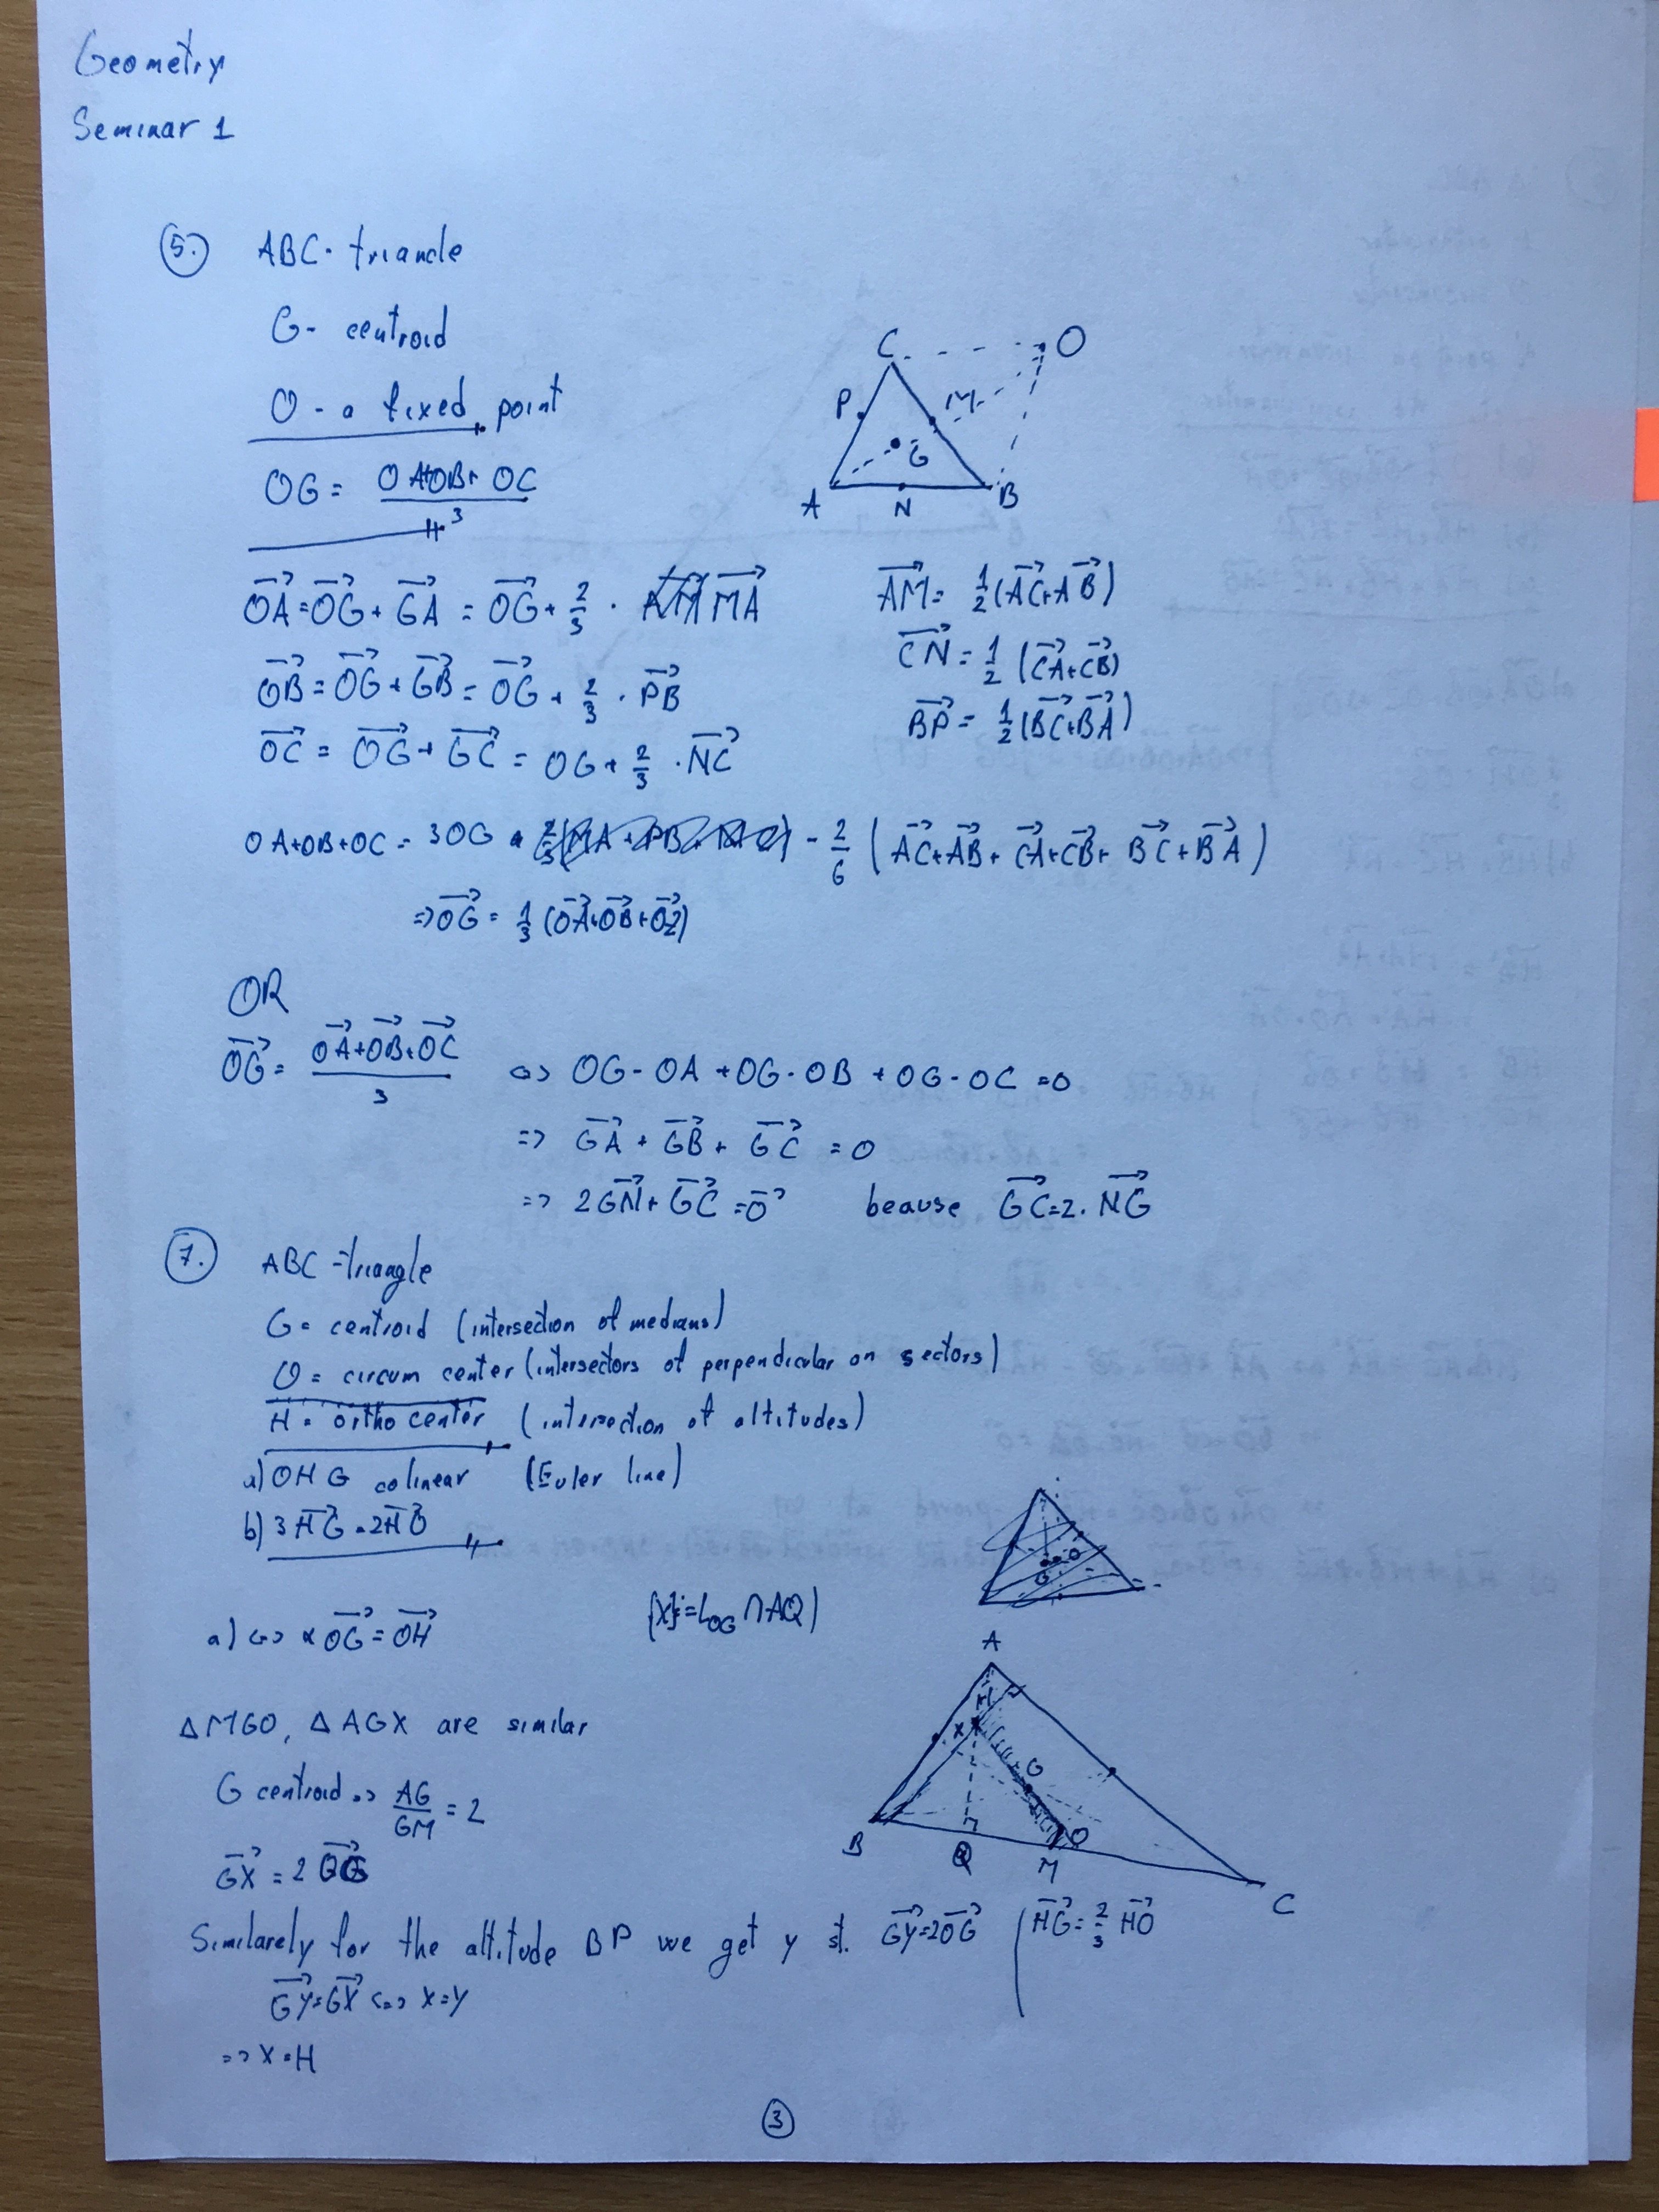 Geometry
Seminar 1
5. ABC - triancle
G - centroid
O - a fixed point
OG = (OA+OB+OC)/3
C O
P M
G
A N B
→OA = →OG + →GA = →OG + 2/3 · →MA
→AM = 1/2 (→AC + →AB)
→OB = →OG + →GB = →OG + 2/3 · →PB
→CN = 1/2 (→CA + →CB)
→OC = →OG + →GC = OG + 2/3 · →NC
→BP = 1/2 (→BC + →BA)
OA+OB+OC = 3OG - 2/6 (→AC + →AB + →CA + →CB + →BC + →BA)
=> →OG = 1/3 (→OA + →OB + →OC)
OR
→OG = (→OA + →OB + →OC)/3 <=> OG - OA + OG - OB + OG - OC = 0
=> →GA + →GB + →GC = 0
=> 2→GN + →GC = →0 beause →GC = 2 · →NG
7. ABC - triangle
G = centroid (intersection of medians)
O = circum center (intersectors of perpendicular on sectors)
H = ortho center (intersection of altitudes)
a) OHG colinear (Euler line)
b) 3→HG = 2→HO
G O
a) <=> α→OG = →OH
{X} := L_OG ∩ AQ)
A
H
X
G
O
B Q M C
△MGO, △AGX are similar
G centroid => AG/GM = 2
→GX = 2→OG
Similarely for the altitude BP we get y st. →GY = 2→OG | →HG = 2/3 →HO
→GY = →GX <=> X = Y
=> X = H
3